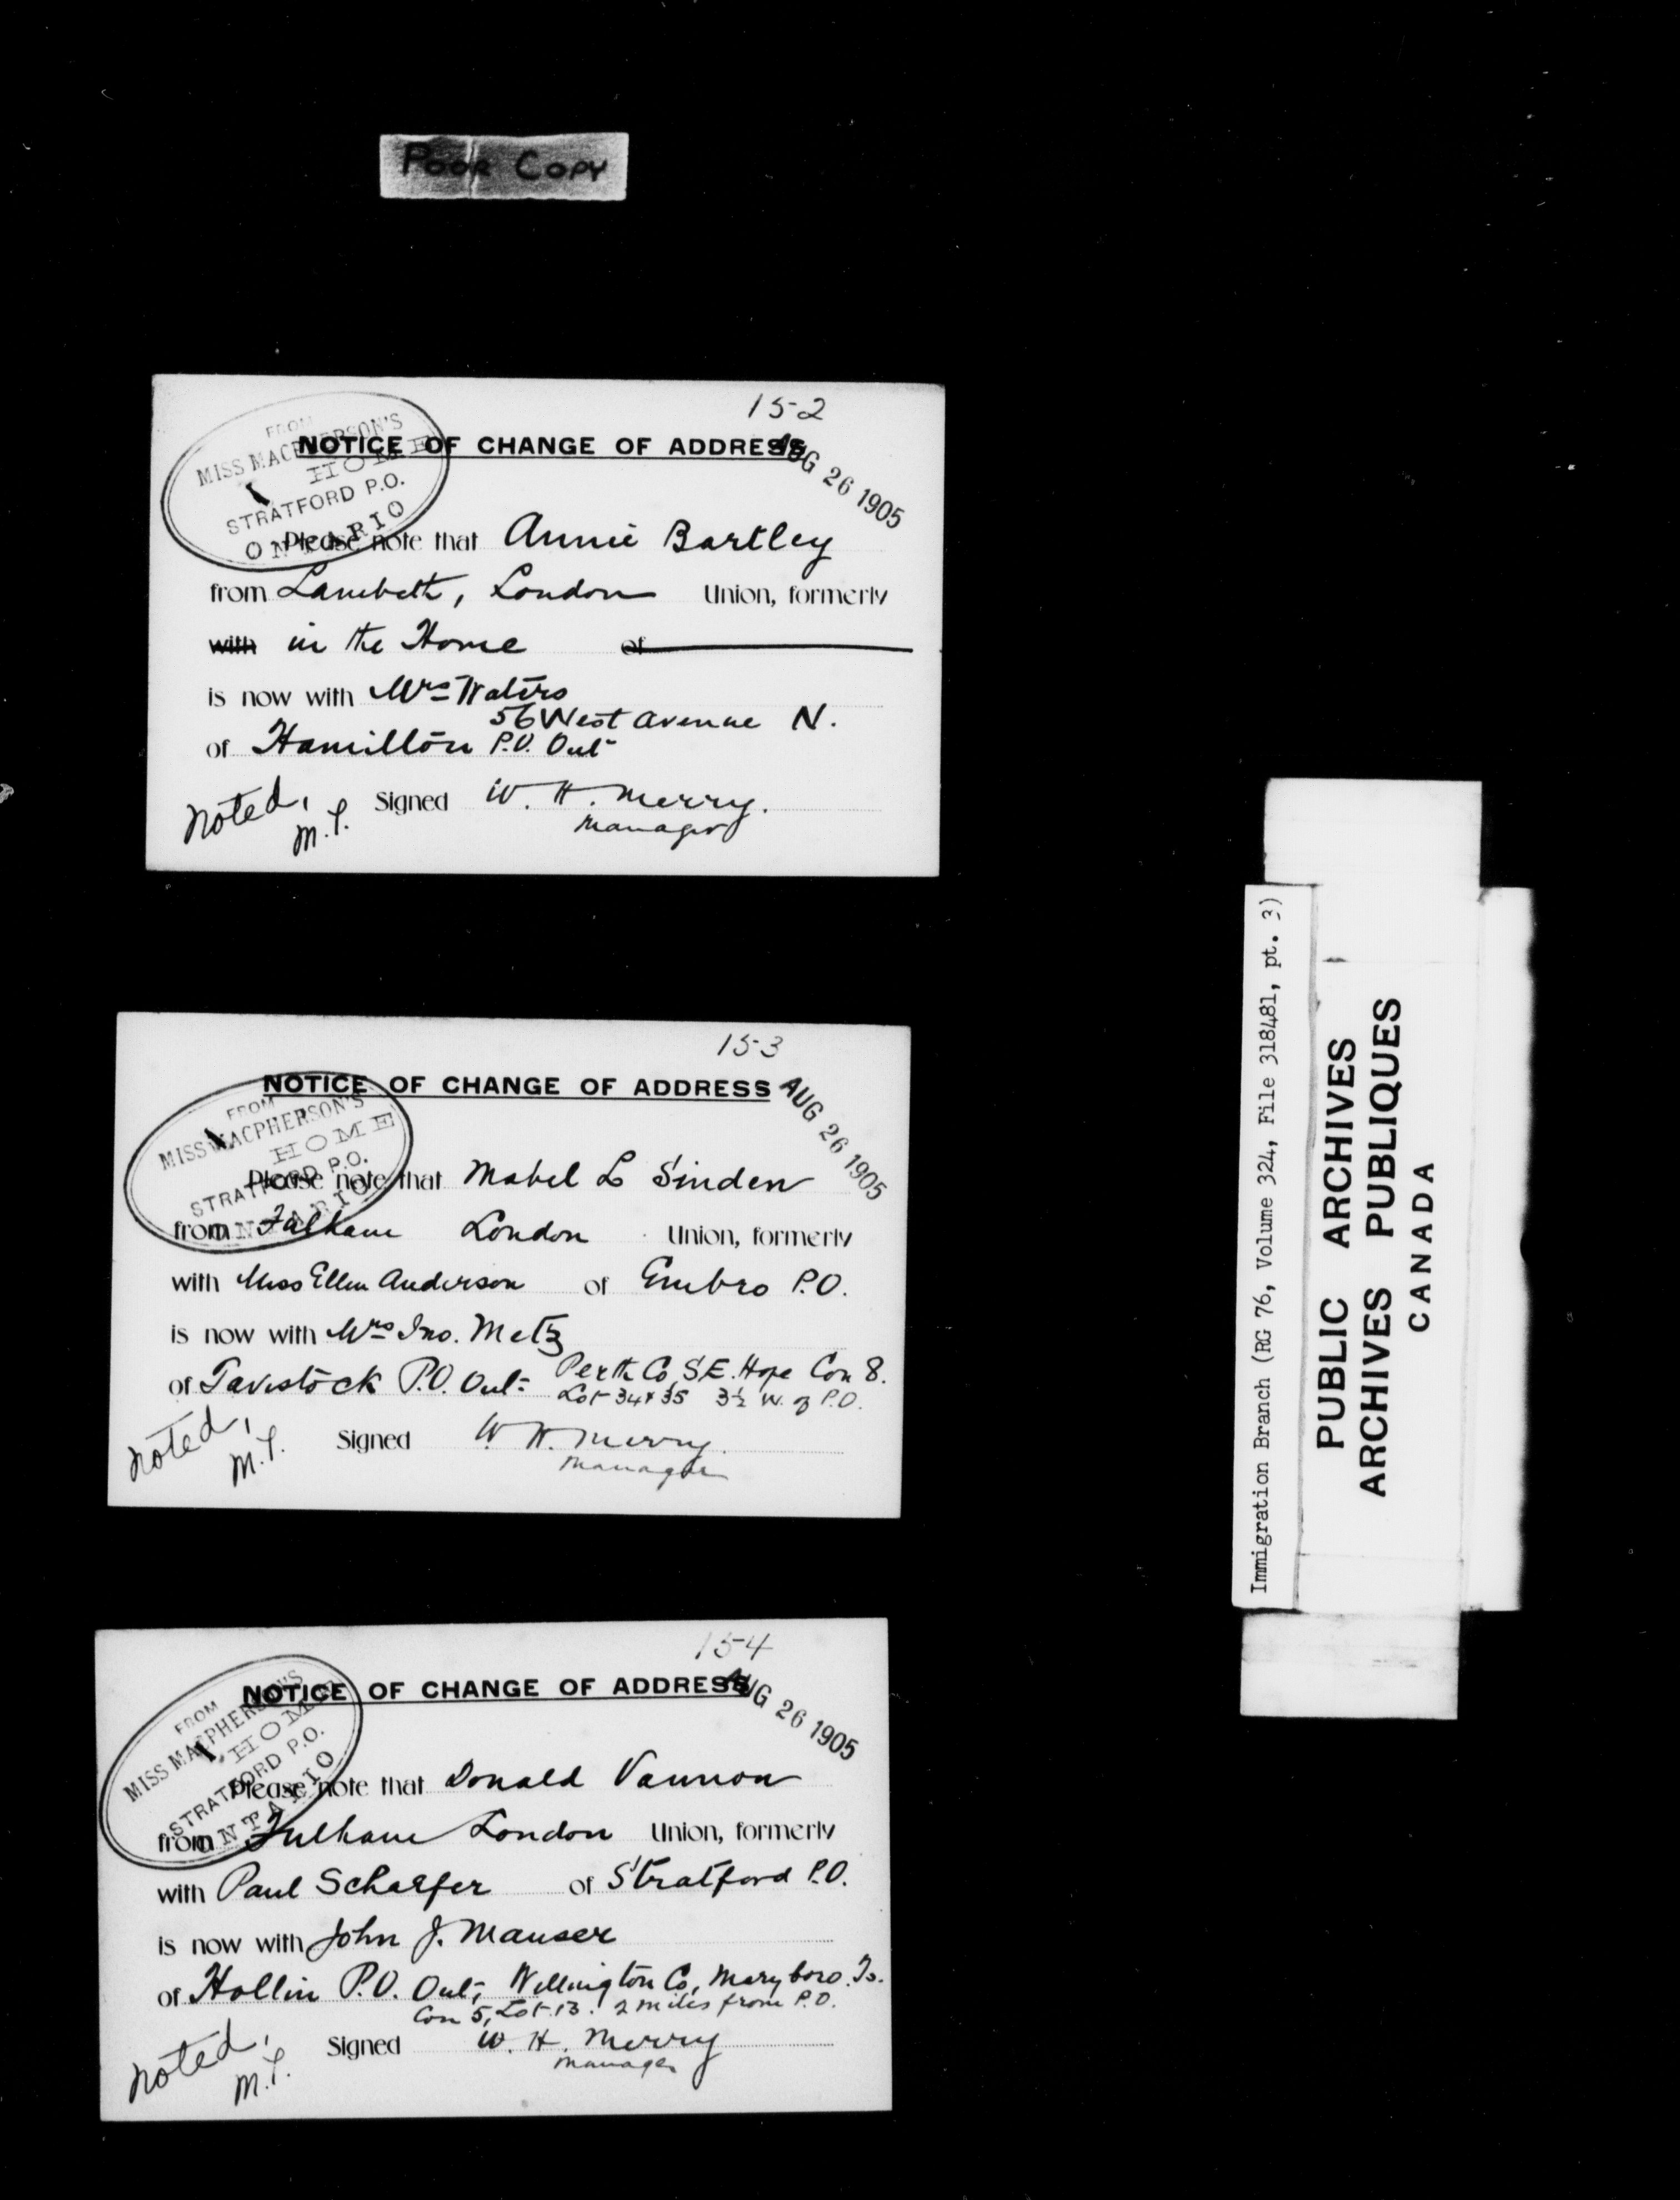 POOR COPY
152
FROM
MISS MACPHERSON'S
HOME
STRATFORD P.O.
ONTARIO
NOTICE OF CHANGE OF ADDRESS
AUG 26 1905
Please note that Annie Bartley
from Lambeth, London Union, formerly
with in the Home of
is now with Mrs Waters
56 West Avenue N.
of Hamilton P.O. Ont
Signed W. H. Merry.
Manager
Noted,
153
FROM
MISS MACPHERSON'S
HOME
STRATFORD P.O.
ONTARIO
NOTICE OF CHANGE OF ADDRESS
AUG 26 1905
Please note that Mabel L Sinden
from Fulham London Union, formerly
with Miss Ellen Anderson of Embro P.O.
is now with Mrs Jno. Metz
of Tavistock P.O. Ont. Perth Co, S.E. Hope Con 8.
Lot 34 & 35 3½ W. of P.O.
Signed W. H. Merry.
Manager
Noted,
154
FROM
MISS MACPHERSON'S
HOME
STRATFORD P.O.
ONTARIO
NOTICE OF CHANGE OF ADDRESS
AUG 26 1905
Please note that Donald Vannon
from Fulham London Union, formerly
with Paul Schaefer of Stratford P.O.
is now with John J. Mauser
of Hollin P.O. Ont, Wellington Co, Maryboro. Ts.
Con 5, Lot 13. 2 miles from P.O.
Signed W. H. Merry
Manager
Noted,
Immigration Branch (RG 76, Volume 324, File 318481, pt. 3)
PUBLIC ARCHIVES
ARCHIVES PUBLIQUES
CANADA